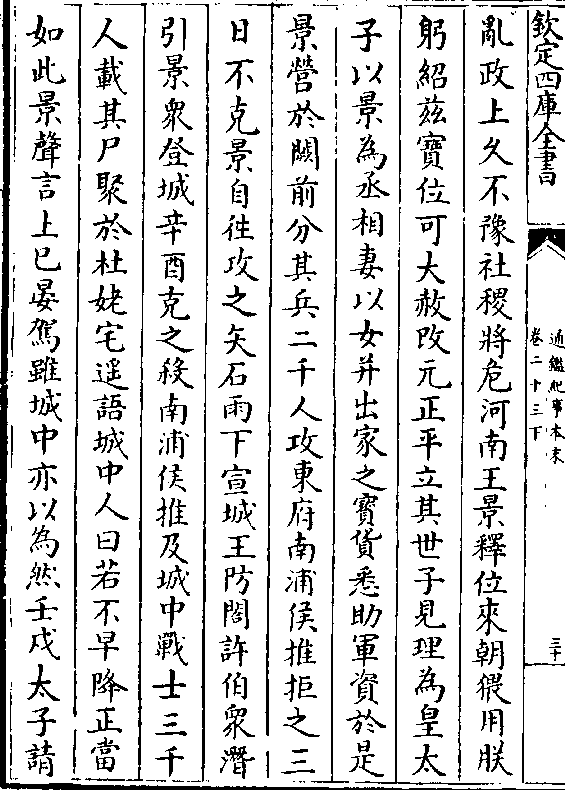 欽定四庫全書
通鑑紀事本末
卷二十三下
三十
亂政上久不豫社稷將危河南王景釋位來朝猥用朕
躬紹兹寶位可大赦改元正平立其世子見理為皇太
子以景為丞相妻以女并出家之寶貨悉助軍資於是
景營於闕前分其兵二千人攻東府南浦侯推拒之三
日不克景自徃攻之矢石雨下宣城王防閤許伯衆潛
引景衆登城辛酉克之殺南浦侯推及城中戰士三千
人載其尸聚於杜姥宅遥語城中人曰若不早降正當
如此景聲言上已晏駕雖城中亦以為然壬戌太子請